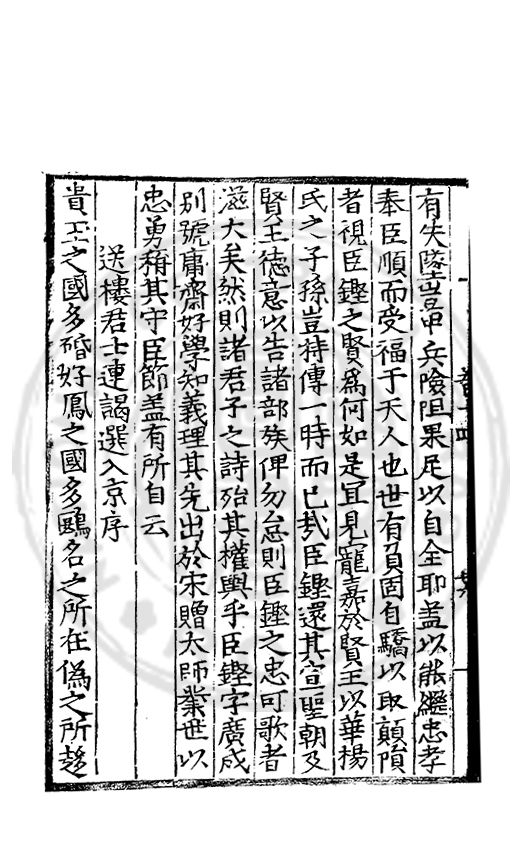 有失墜豈甲兵險阻果足以自全耶盖以能繼忠孝
奉臣順而受福于天人也世有負固自驕以取顛隕
者視臣鏗之賢爲何如是冝見寵嘉於賢王以華楊
氏之子孫豈特傳一時而已㢤臣鏗還其宣聖朝及
賢王德意以告諸部族俾勿怠則臣鏗之忠可歌者
滋大矣然則諸君子之詩殆其權輿乎臣鏗字廣成
别號庸齋好學知義理其先出於宋贈太師業世以
忠勇稱其守臣節盖有所自云
送樓君士連謁選入京序
貴玉之國多碈好鳳之國多鷗名之所在僞之所趍